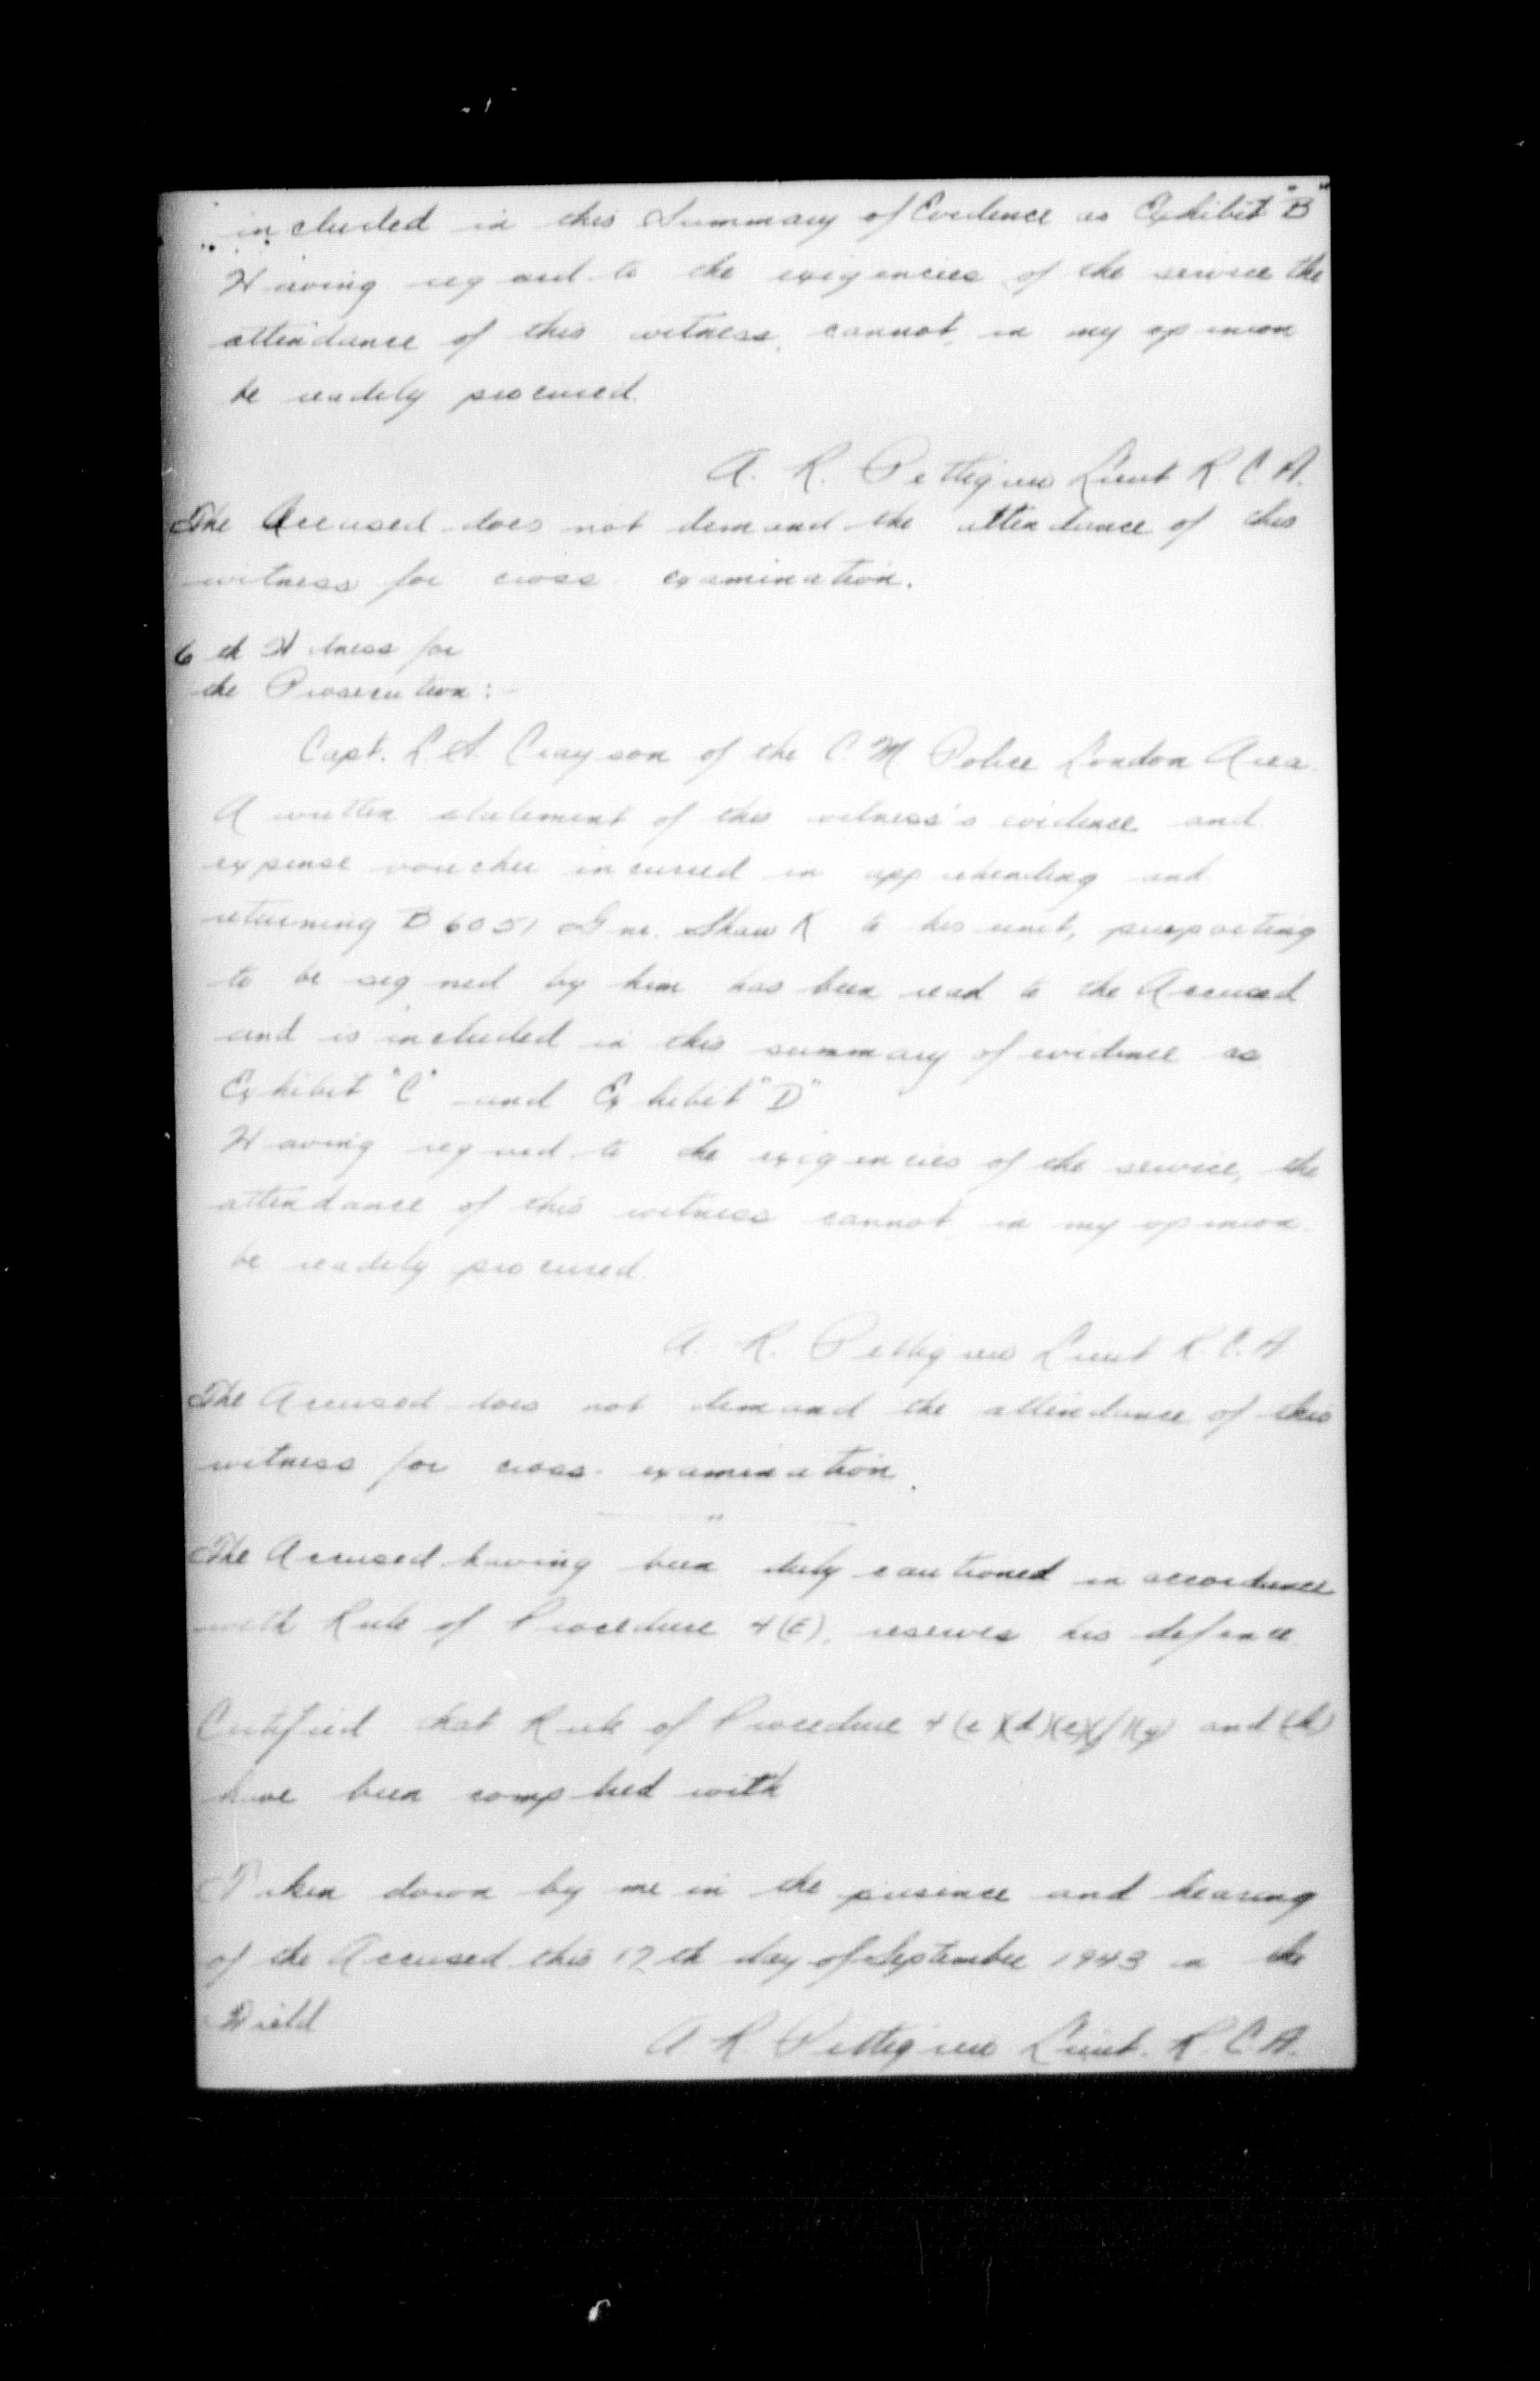 included in this Summary of Evidence as Exhibit "B"
Having regard to the exigencies of the service the
attendance of this witness, cannot, in my opinion
be readily procured.
A. R. Pettigrew Lieut R. C. A.
The Accused does not demand the attendance of this
witness for cross examination.
6 th Witness for
the Prosecution:-
Capt. L. A. Grayson of the C. M Police London Area.
A written statement of this witness's evidence and
expense voucher incurred in apprehending and
returning B 6051 Gnr. Shaw K to his unit, purporting
to be signed by him has been read to the Accused
and is included in this summary of evidence as
Exhibit "C" and Exhibit "D"
Having regard to the exigencies of the service, the
attendance of this witness cannot, in my opinion
be readily procured
A. R. Pettigrew Lieut R. C. A
The Accused does not demand the attendance of this
witness for cross. examination.
"
The Accused having been duly cautioned in accordance
with Rule of Procedure 4 (E), reserves his defence
Certified that Rule of Procedure 4 (c)(d)(e)(f)(g) and (h)
have been complied with
Taken down by me in the presence and hearing
of the Accused this 17 th day of September 1943 in the
Field
A R. Pettigrew Lieut. R. C. A.